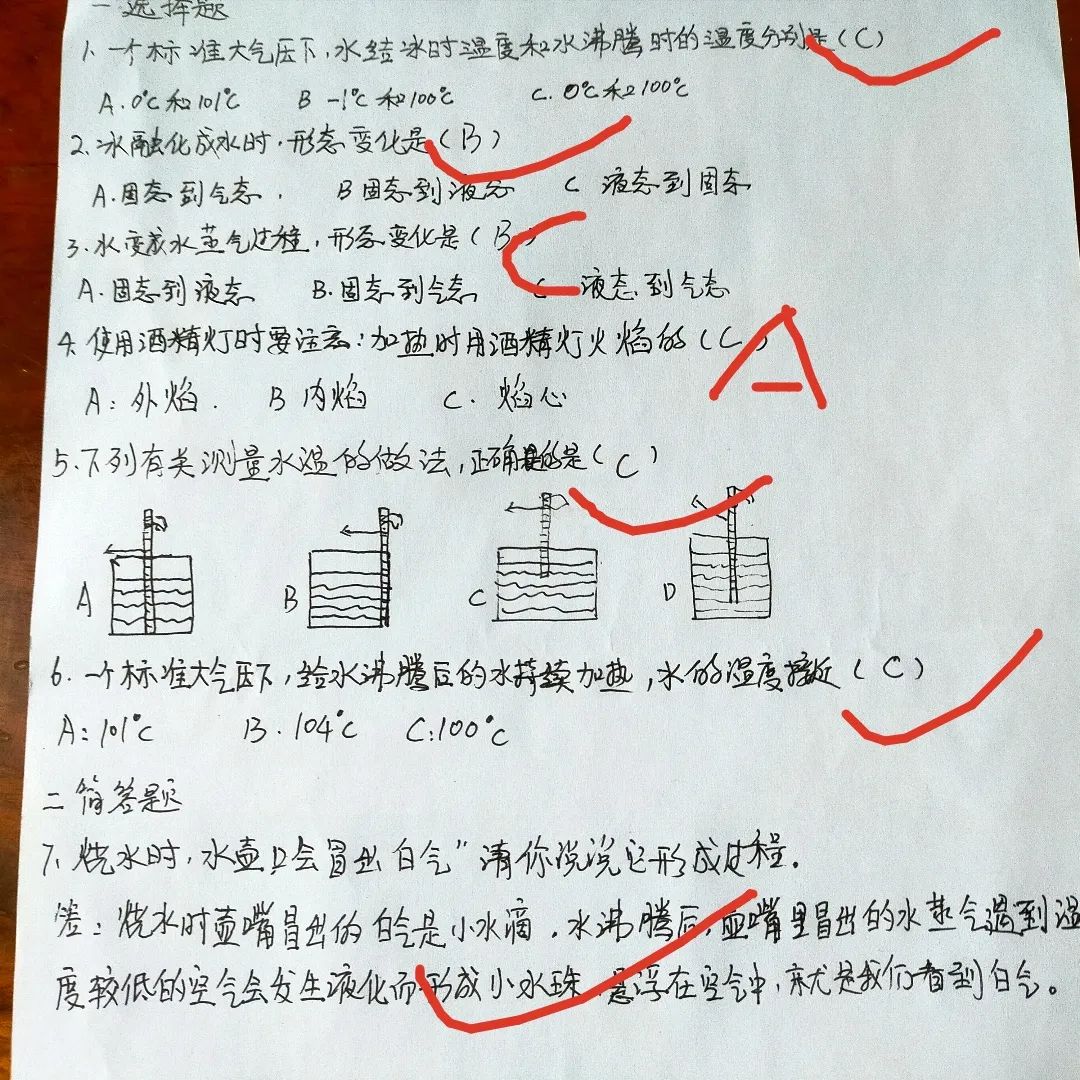 一 选择题
1. 一个标准大气压下,水结冰时温度和水沸腾时的温度分别是(C)
A. 0℃和101℃ B -1℃和100℃ C. 0℃和100℃
2. 冰融化成水时,形态变化是(B)
A. 固态到气态. B 固态到液态 C 液态到固态
3. 水变成水蒸气过程,形态变化是(B) C
A. 固态到液态 B. 固态到气态 C 液态到气态
4. 使用酒精灯时要注意:加热时用酒精灯火焰的(C) A
A: 外焰. B 内焰 C. 焰心
5. 下列有关测量水温的做法,正确的是(C)
A B C D
6. 一个标准大气压下,给水沸腾后的水持续加热,水的温度接近(C)
A: 101℃ B. 104℃ C: 100℃
二 简答题
7. 烧水时,水壶口会冒出白气”请你说说它形成过程.
答:烧水时壶嘴冒出的白气是小水滴.水沸腾后,壶嘴里冒出的水蒸气遇到温
度较低的空气会发生液化而形成小水珠 悬浮在空气中,就是我们看到白气。